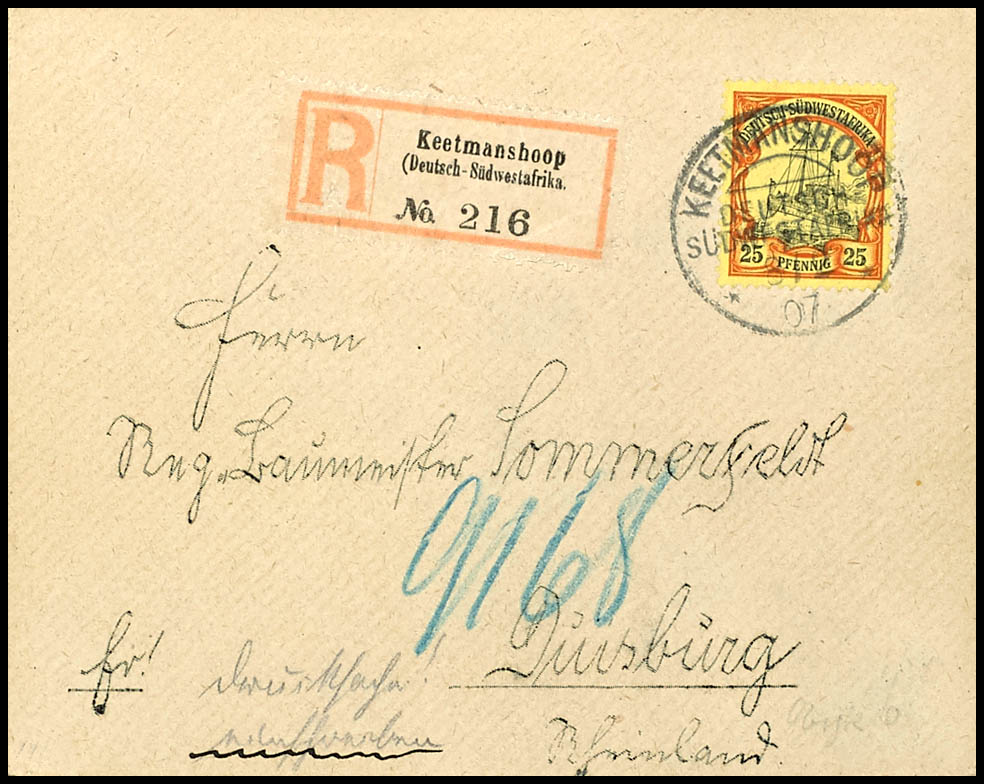 R
Keetmanshoop
(Deutsch-Südwestafrika.
No. 216
DEUTSCH-SÜDWESTAFRIKA
25 PFENNIG 25
KEETMANSHOOP
DEUTSCH
SÜDWESTAFRIKA
07
Herrn
Reg. Baumeister Sommerfeldt
9168
Duisburg
Fr!
Drucksache!
aufheben
Rheinland.